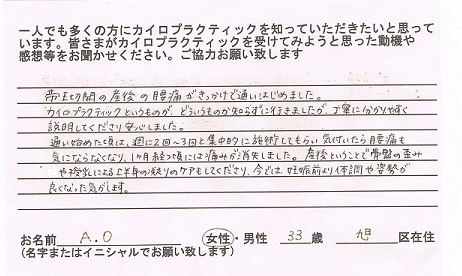 一人でも多くの方にカイロプラクティックを知っていただきたいと思って
います。皆さまがカイロプラクティックを受けてみようと思った動機や
感想等をお聞かせください。ご協力お願い致します
帝王切開の産後の腰痛がきっかけで通いはじめました。
カイロプラクティックというものが、どういうものか知らずに行きましたが、丁寧に分かりやすく
説明してくださり安心しました。
通い始めた頃は、週に2回〜3回と集中的に施術してもらい気付いたら腰痛も
気にならなくなり、1ヶ月経つ頃には痛みが消失しました。産後ということで骨盤の歪み
や授乳による上半身の凝りのケアもしてくださり、今では、妊娠前より体調や姿勢が
良くなった気がします。
お名前 A.O 女性・男性 33歳 旭 区在住
(名字またはイニシャルでお願い致します)